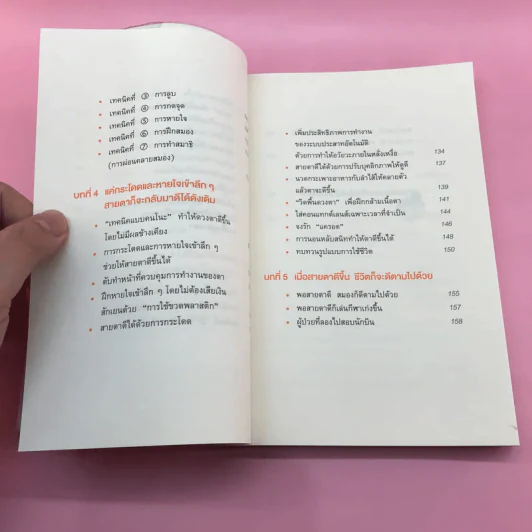 • เทคนิคที่ ③ การลูบ
• เทคนิคที่ ④ การกดจุด
• เทคนิคที่ ⑤ การหายใจ
• เทคนิคที่ ⑥ การฝึกสมอง
• เทคนิคที่ ⑦ การทำสมาธิ
(การผ่อนคลายสมอง)
บทที่ 4 แค่กระโดดและหายใจเข้าลึก ๆ
สายตาก็จะกลับมาดีได้ดังเดิม
• “เทคนิคแบบคนโนะ” ทำให้ดวงตาดีขึ้น
โดยไม่มีผลข้างเคียง
• การกระโดดและการหายใจเข้าลึก ๆ
ช่วยให้สายตาดีขึ้นได้
• ตับทำหน้าที่ควบคุมการทำงานของตา
• ฝึกหายใจเข้าลึก ๆ โดยไม่ต้องเสียเงิน
สักเยนด้วย “การใช้ขวดพลาสติก”
• สายตาดีได้ด้วยการกระโดด
• เพิ่มประสิทธิภาพการทำงาน
ของระบบประสาทอัตโนมัติ
ด้วยการทำให้อวัยวะภายในหลั่งเหงื่อ 134
• สายตาดีได้ด้วยการปรับบุคลิกภาพให้ดูดี 137
• นวดกระเพาะอาหารกับลำไส้ให้คลายตัว
แล้วตาจะดีขึ้น 139
• “วิดพื้นดวงตา” เพื่อฝึกกล้ามเนื้อตา 141
• ใส่คอนแทกต์เลนส์เฉพาะเวลาที่จำเป็น 144
• จงรัก “แครอต” 146
• การนอนหลับสนิททำให้ตาดีขึ้นได้ 148
• ทบทวนรูปแบบการใช้ชีวิต 150
บทที่ 5 เมื่อสายตาดีขึ้น ชีวิตก็จะดีตามไปด้วย
• พอสายตาดี สมองก็ดีตามไปด้วย 155
• พอสายตาดีก็เล่นกีฬาเก่งขึ้น 157
• ผู้ป่วยที่ลองไปสอบนักบิน 158